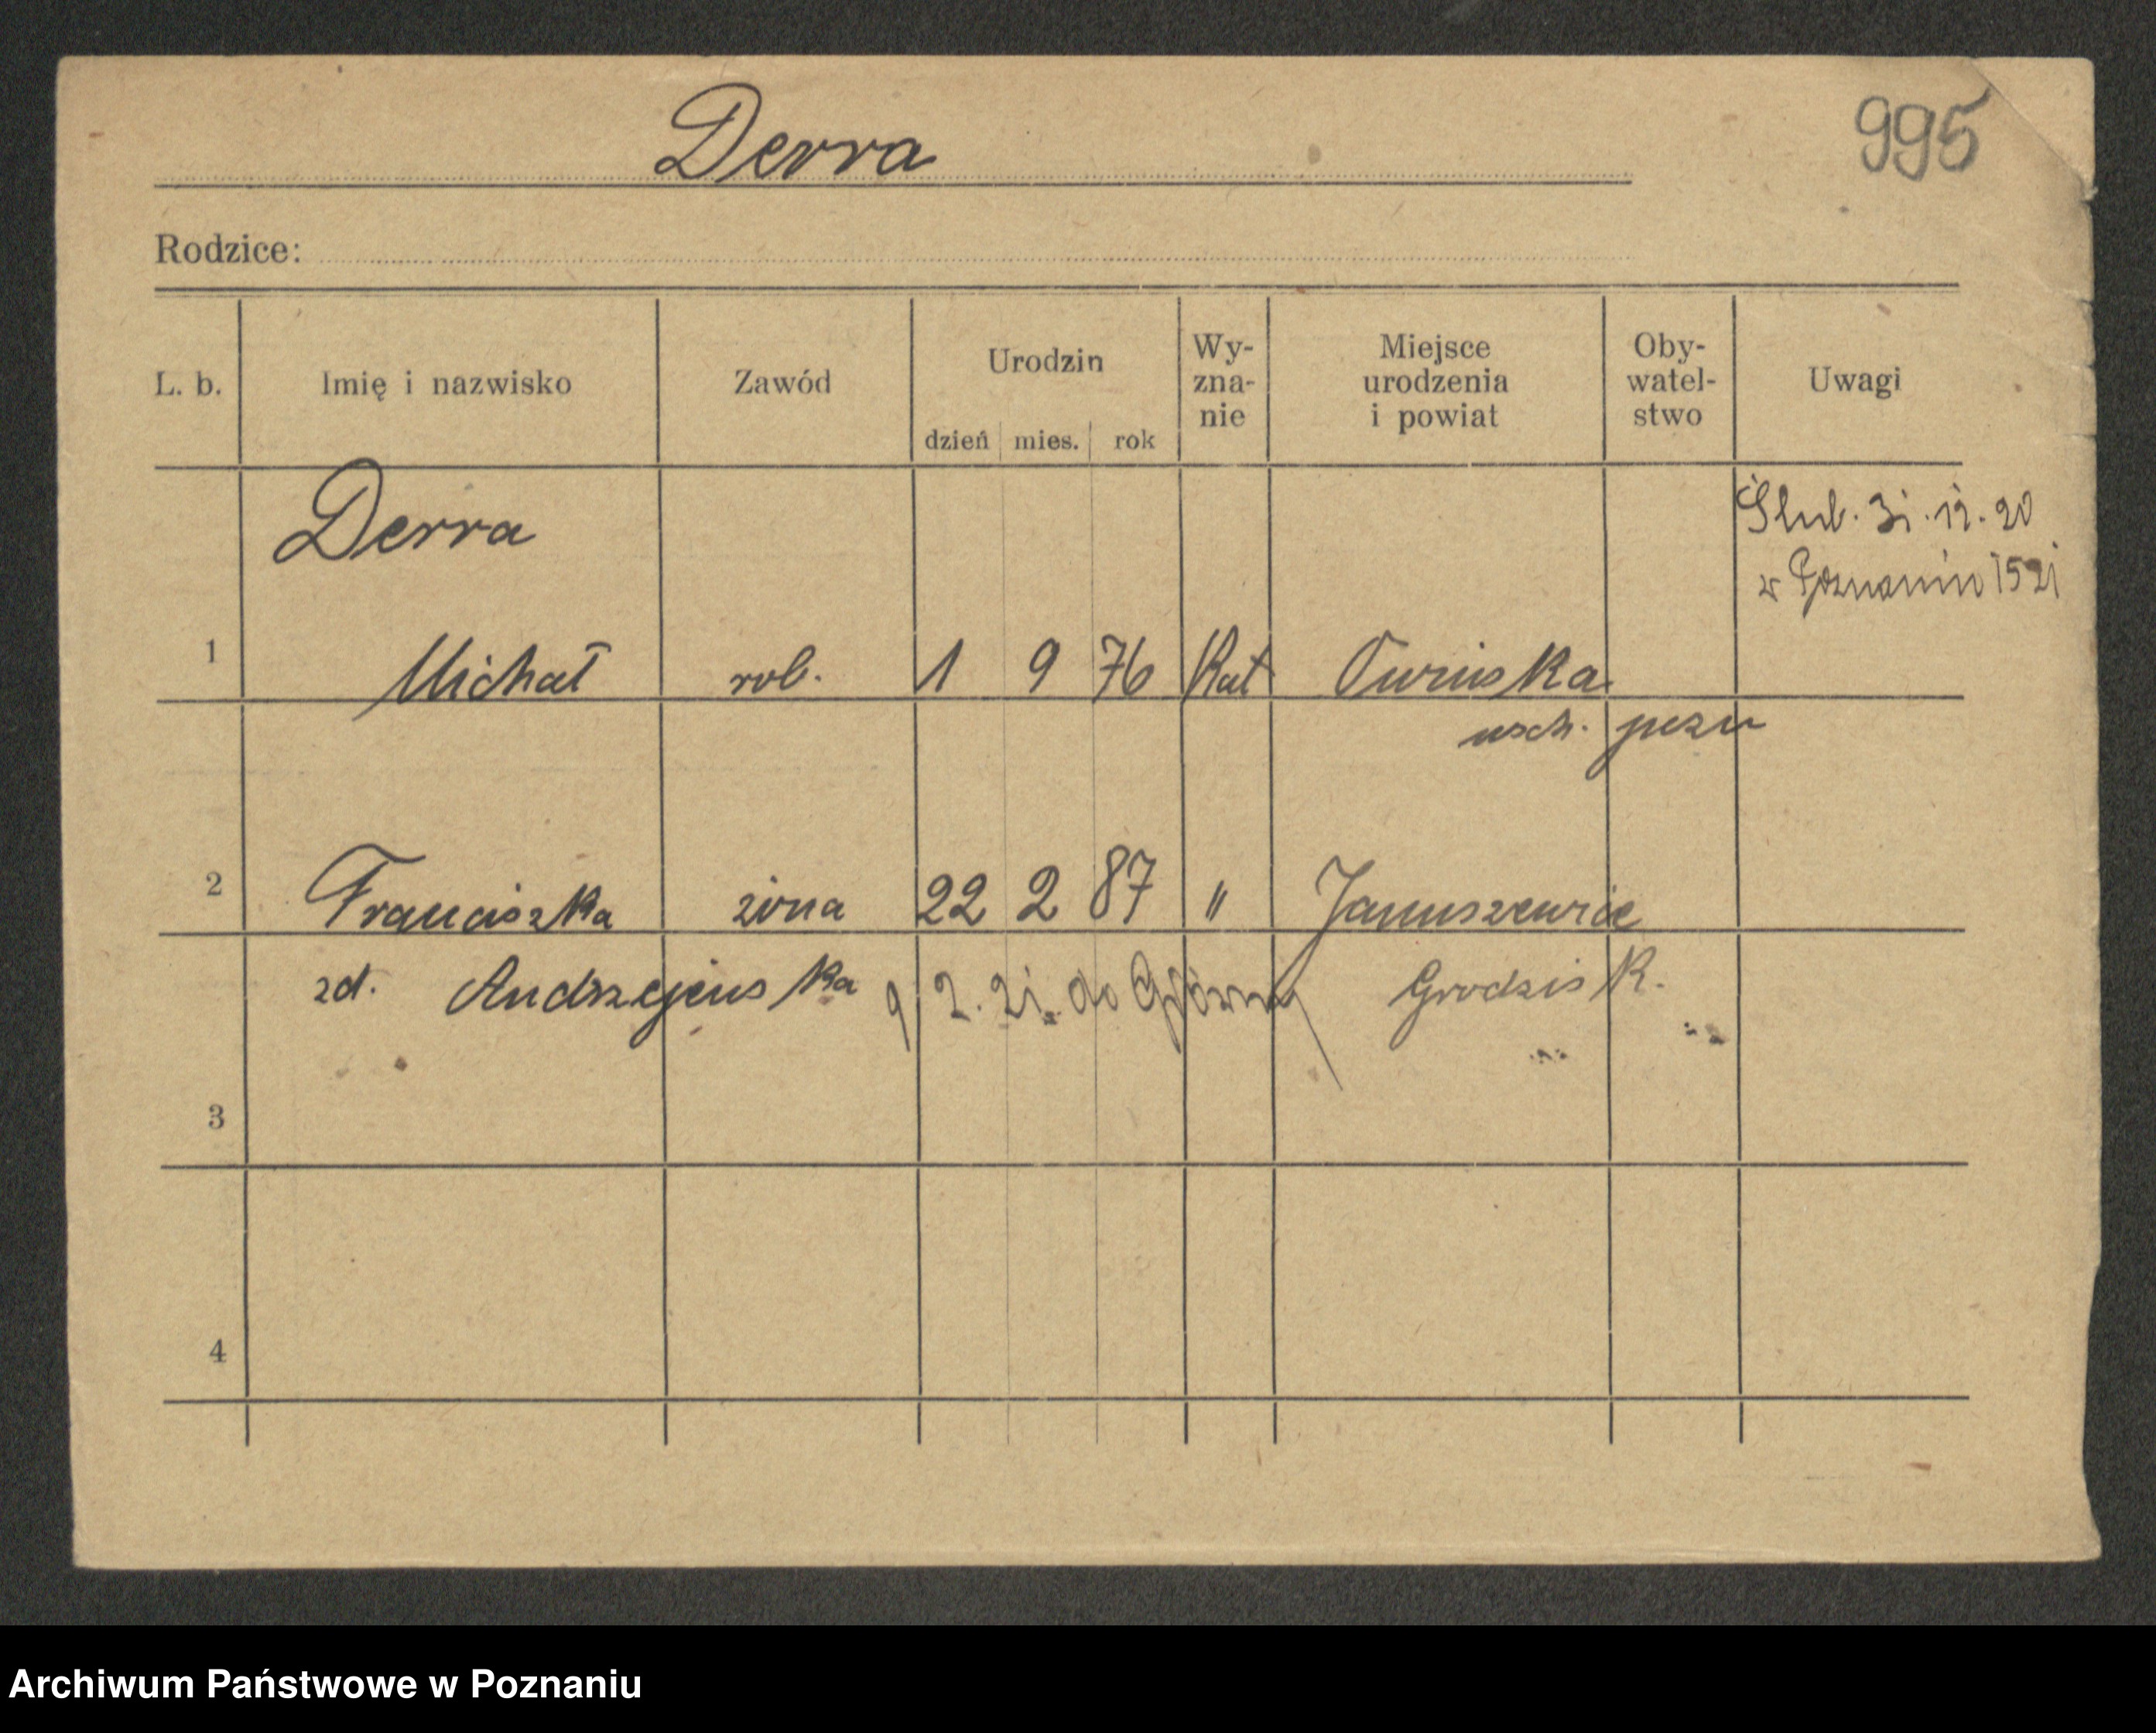 Derra
995
Rodzice:
L. b. Imię i nazwisko Zawód Urodzin dzień mies. rok Wy-zna-nie Miejsce urodzenia i powiat Oby-watel-stwo Uwagi
Derra
Ślub. 31.12.20
w Poznaniu 1521
1 Michał rob. 1 9 76 Kat Owinska
wsch. pozn
2 Franciszka żona 22 2 87 " Januszewice
zd. Andrzejewska 9 2. 21. do Główny Grodzisk.
3
4
Archiwum Państwowe w Poznaniu